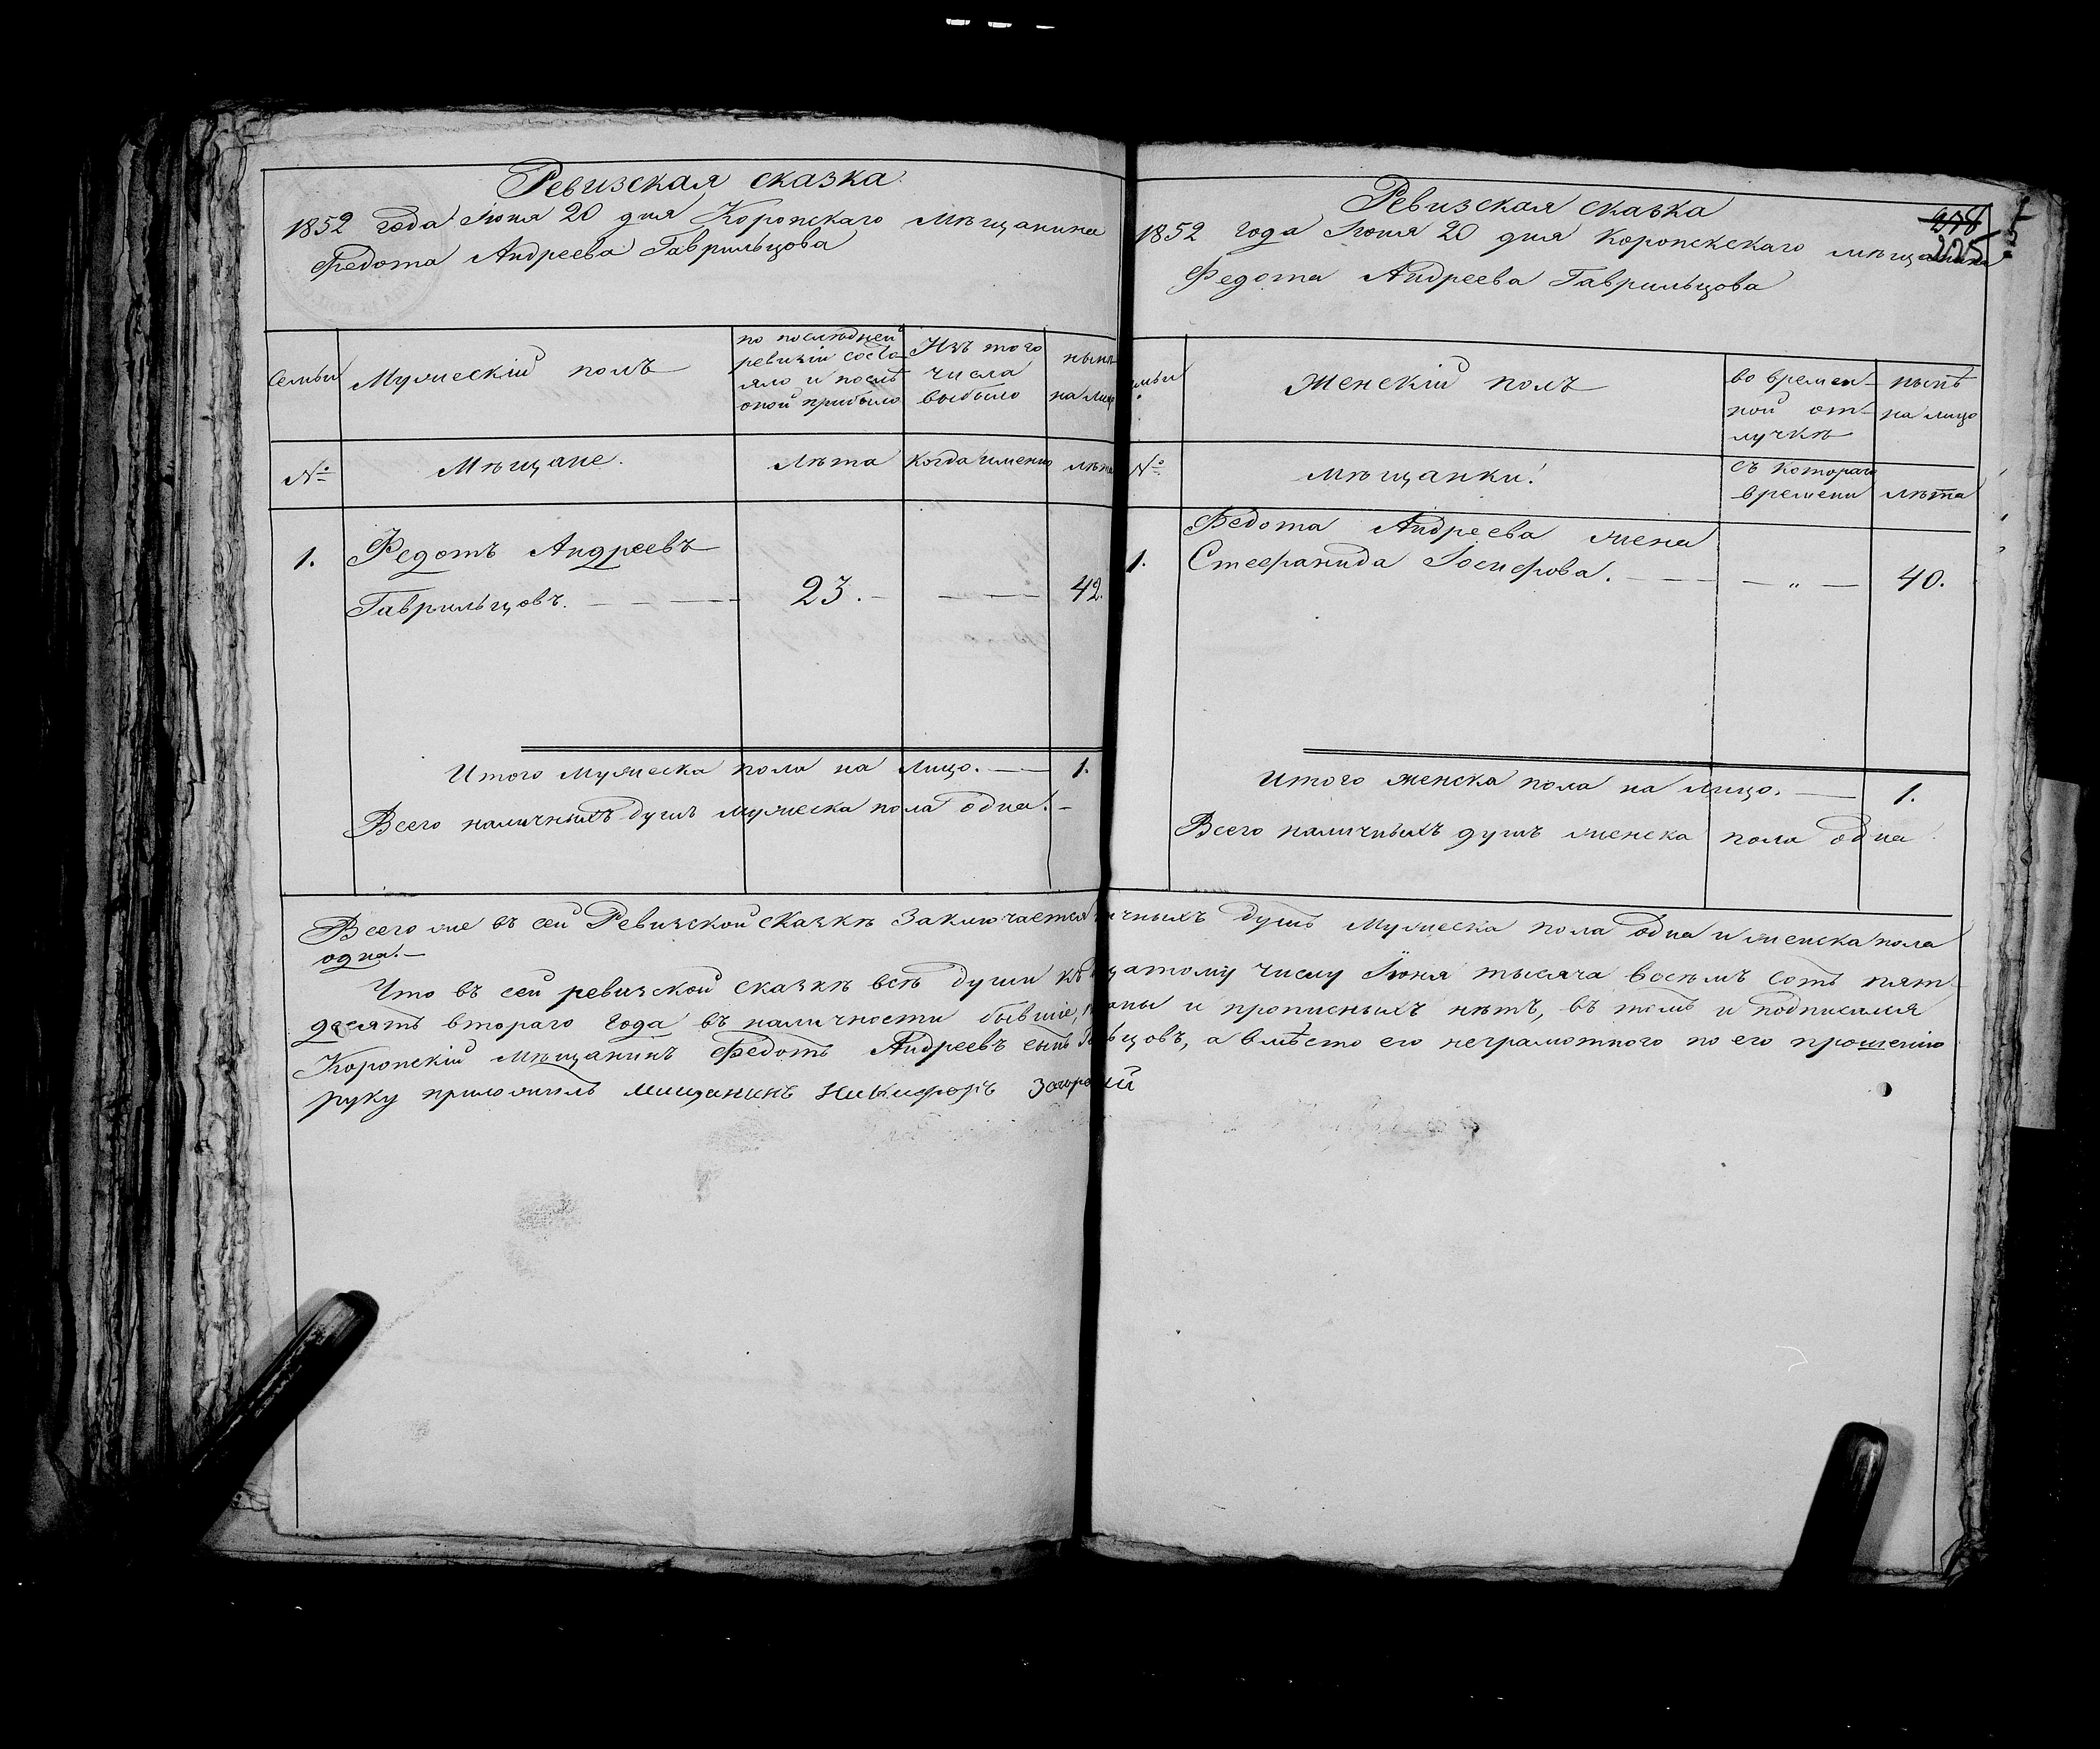 Ревизская сказка
1852 года Іюня 20 дня Коропскаго Мѣщанина
Федота Андреева Гаврильцова
Семьи
Мужескій полъ
по послѣдней
ревизіи состо-
яло и послѣ
оной прибыло
Изъ того
числа
выбыло
нынѣ
на лицо
№
Мѣщане.
Лѣта
когда именно
лѣта
1.
Федотъ Андреевъ
Гаврильцовъ.
23.
42.
Итого мужеска пола на лицо. 1.
Всего наличныхъ душъ мужеска пола одна.
Ревизская сказка
1852 года Іюня 20 дня Коропскскаго мѣщанина
Федота Андреева Гаврильцова
278
225
Женскій полъ
во времен-
ной от-
лучкѣ
нынѣ
на лицо
№
мѣщанки.
съ котораго
времени
лѣта
1.
Федота Андреева жена
Стефанида Іосифова. „ 40.
Итого женска пола на лицо. 1.
Всего наличныхъ душъ женска пола одна
Всего же въ сей Ревизской сказкѣ Заключается чныхъ душъ Мужеска пола одна и женска пола
одна.
Что въ сей ревизской сказкѣ всѣ души къ цатому числу Іюня тысяча восѣмъ сотъ пят-
десятъ втораго года въ наличности бывшіе, ны и прописныхъ нѣтъ, въ томъ и подписался
Коропскій Мѣщанинъ Федотъ Андреевъ сынъ цовъ, а вмѣсто его неграмотнаго по его прошенію
руку приложилъ мищанинъ Никифоръ